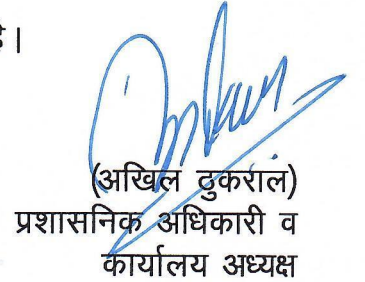 है।
(अखिल ठुकराल)
प्रशासनिक अधिकारी व
कार्यालय अध्यक्ष